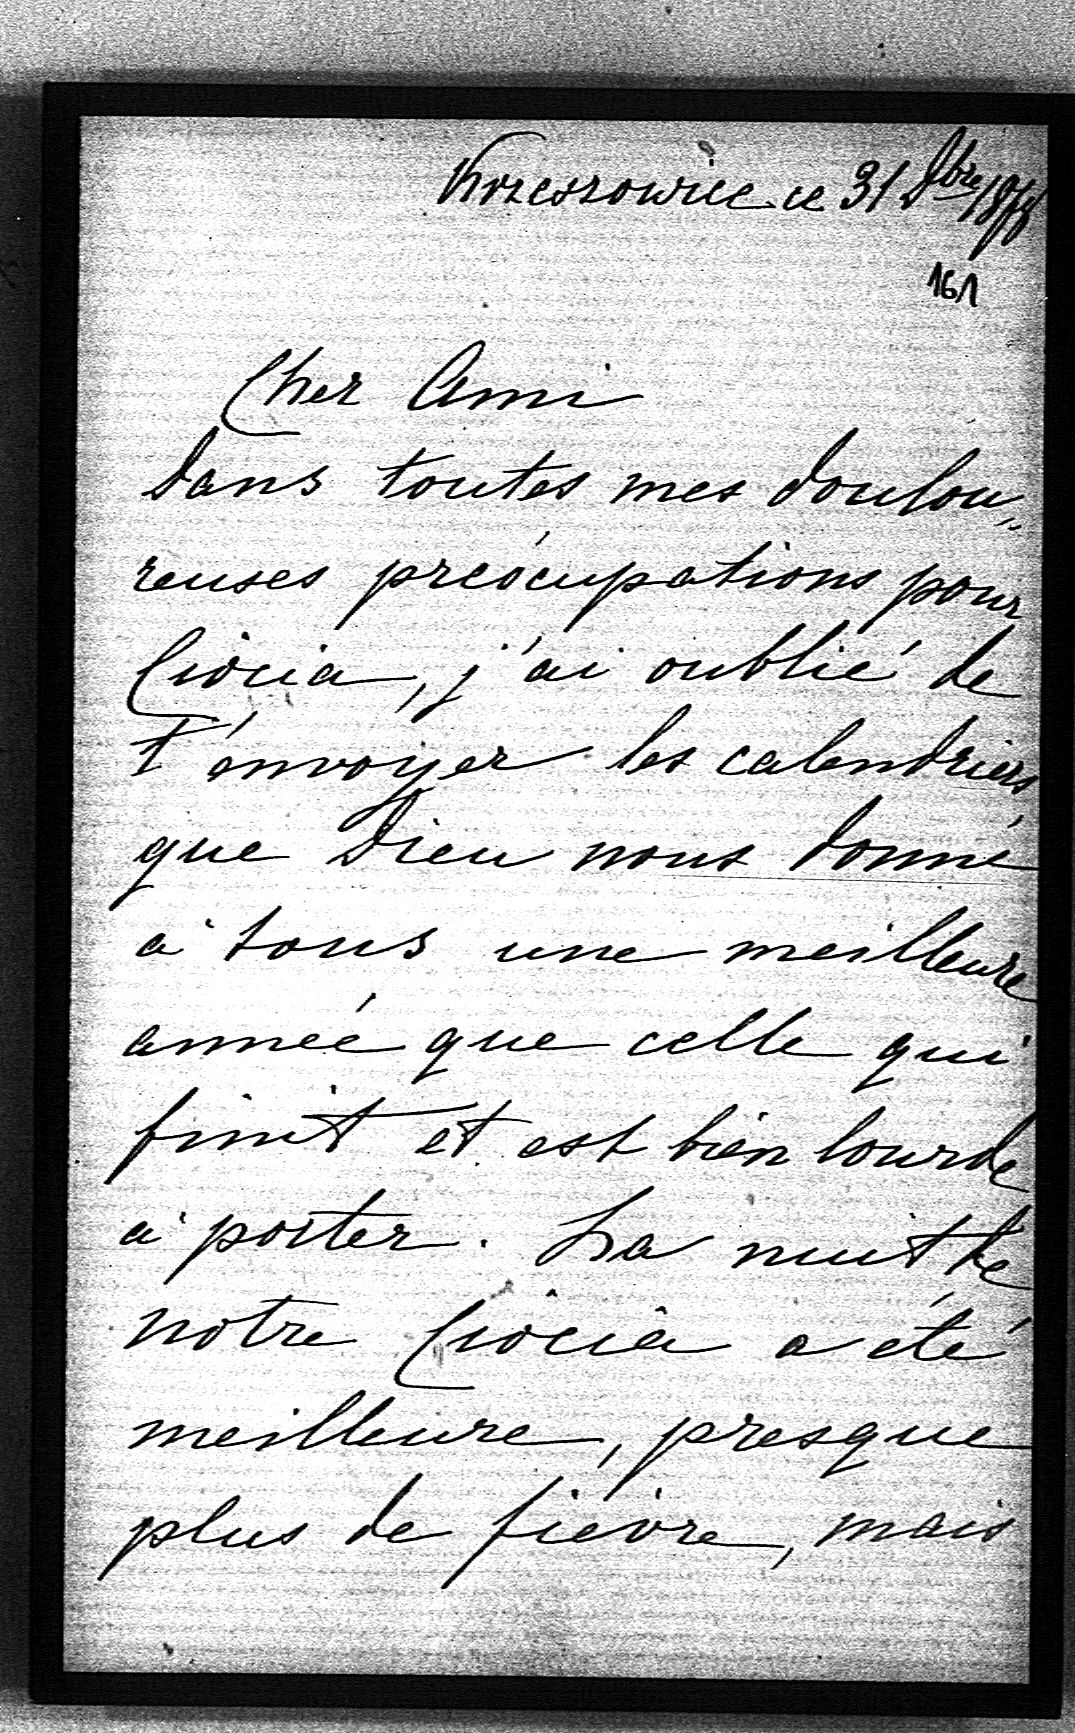 Krzeszowice ce 31 Dbre
161
Cher Ami
Dans toutes mes doulou„
reuses préocupations pour
Ciocia, j'ai oublié de
t'envoyer les calendriers
que Dieu nous donne
à tous une meilleure
année que celle qui
finit et est bien lourde
à porter. La nuit de
notre Ciocia a été
meilleure, presque
plus de fièvre, mais